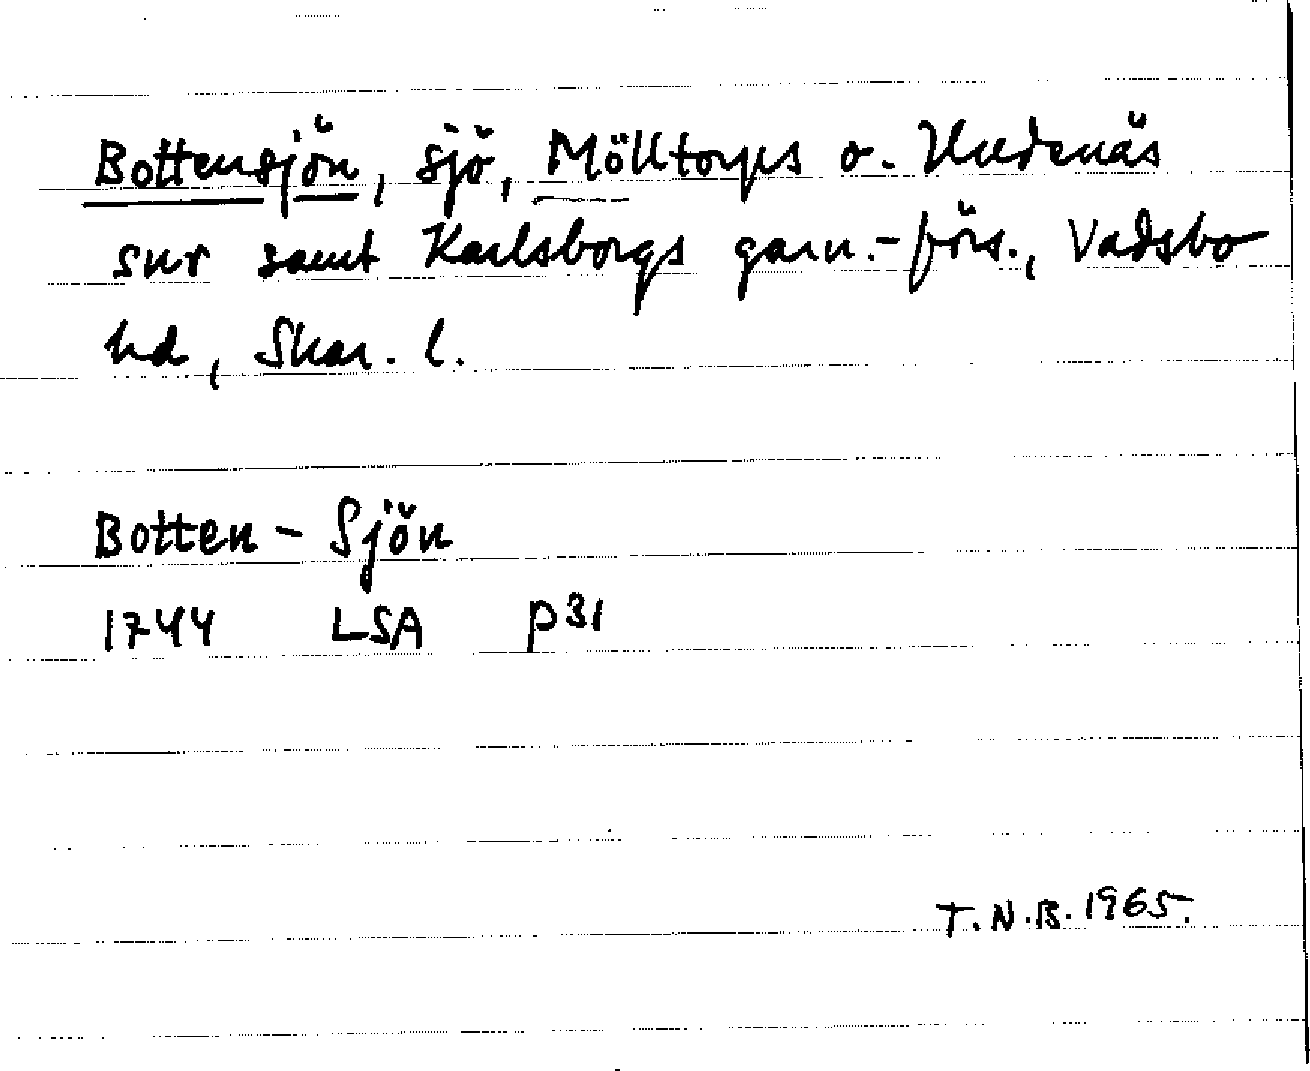 Bottensjön, sjö, Mölltorps o. Undenäs
snr samt Karlsborgs garn.-förs., Vadsbo
hd, Skar. l.
Botten-Sjön
1744 LSA P31
T.N.B. 1965.